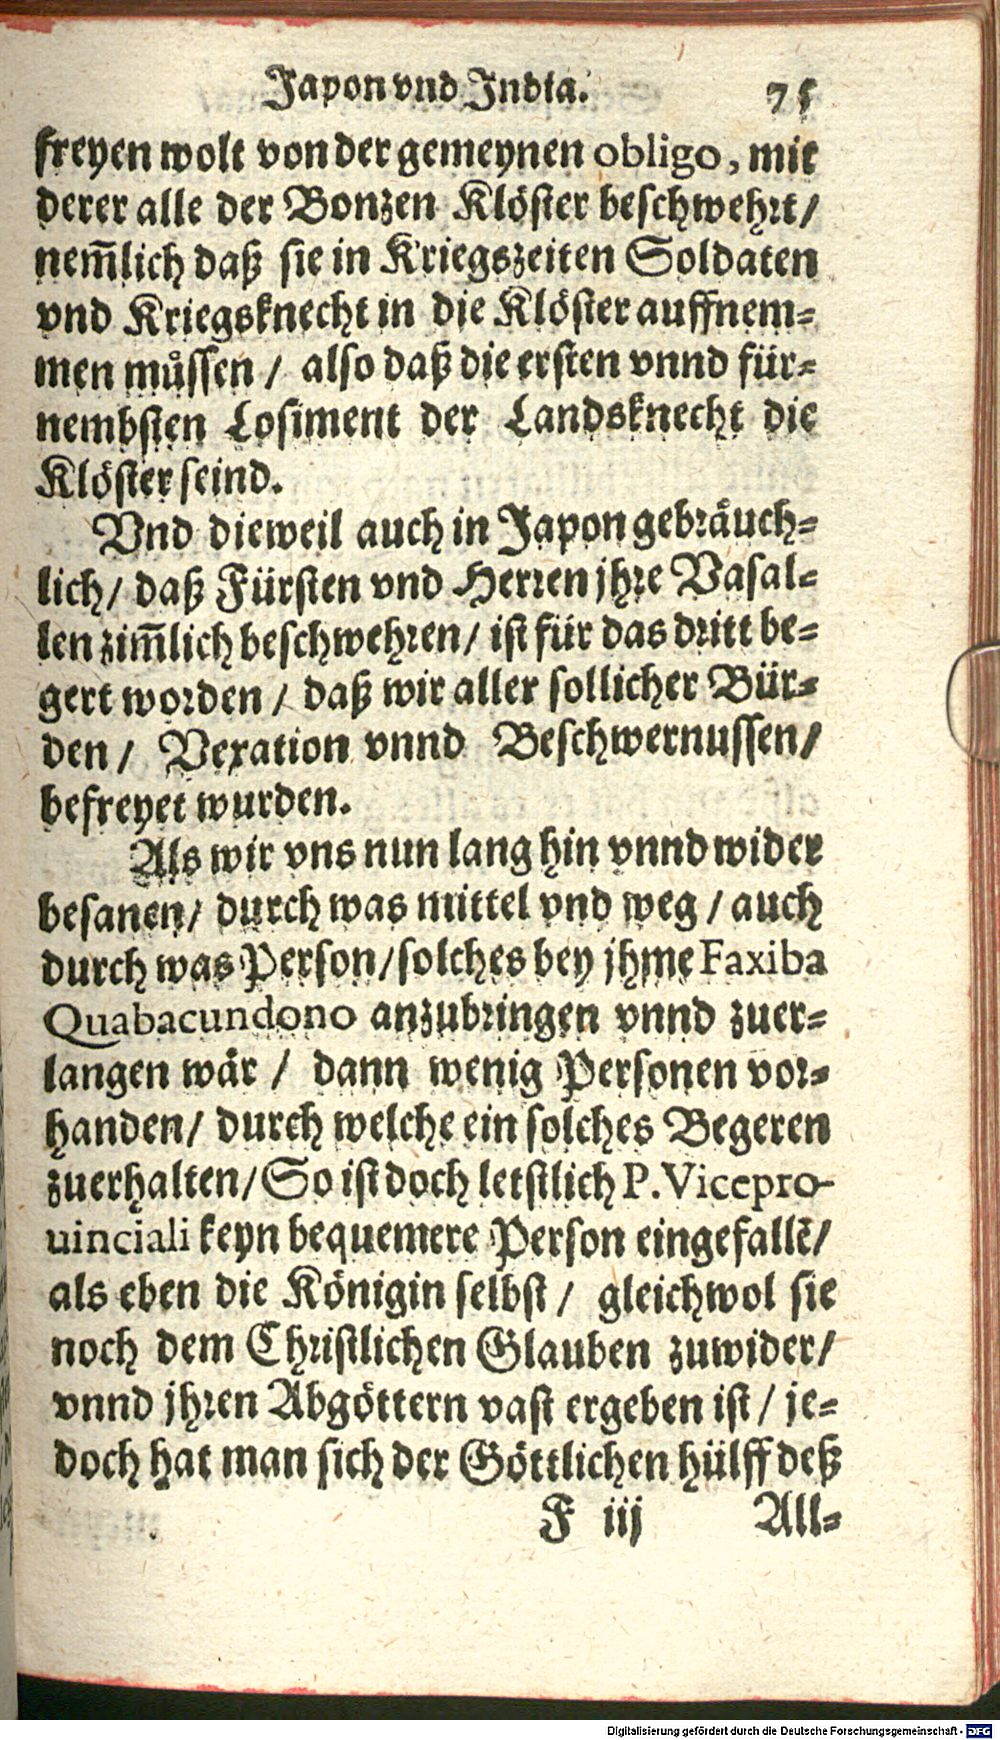 Japon vnd India. 75
freyen wolt von der gemeynen obligo, mit
derer alle der Bonzen Klöster beschwehrt/
nem̄lich daß sie in Kriegszeiten Soldaten
vnd Kriegsknecht in die Klöster auffnem-
men muͤssen / also daß die ersten vnnd für-
nembsten Losiment der Landsknecht die
Klöster seind.
Vnd dieweil auch in Japon gebräuch-
lich/ daß Fürsten vnd Herren jhre Vasal-
len zim̄lich beschwehren/ ist für das dritt be-
gert worden / daß wir aller sollicher Bür-
den / Vexation vnnd Beschwernussen/
befreyet wurden.
Als wir vns nun lang hin vnnd wider
besanen/ durch was mittel vnd weg / auch
durch was Person/ solches bey jhme Faxiba
Quabacundono anzubringen vnnd zuer-
langen wär / dann wenig Personen vor-
handen/ durch welche ein solches Begeren
zuerhalten/ So ist doch letstlich P. Vicepro-
uinciali keyn bequemere Person eingefallē/
als eben die Königin selbst / gleichwol sie
noch dem Christlichen Glauben zuwider/
vnnd jhren Abgöttern vast ergeben ist / je-
doch hat man sich der Göttlichen hülff deß
F iij All-
Digitalisierung gefördert durch die Deutsche Forschungsgemeinschaft - DFG